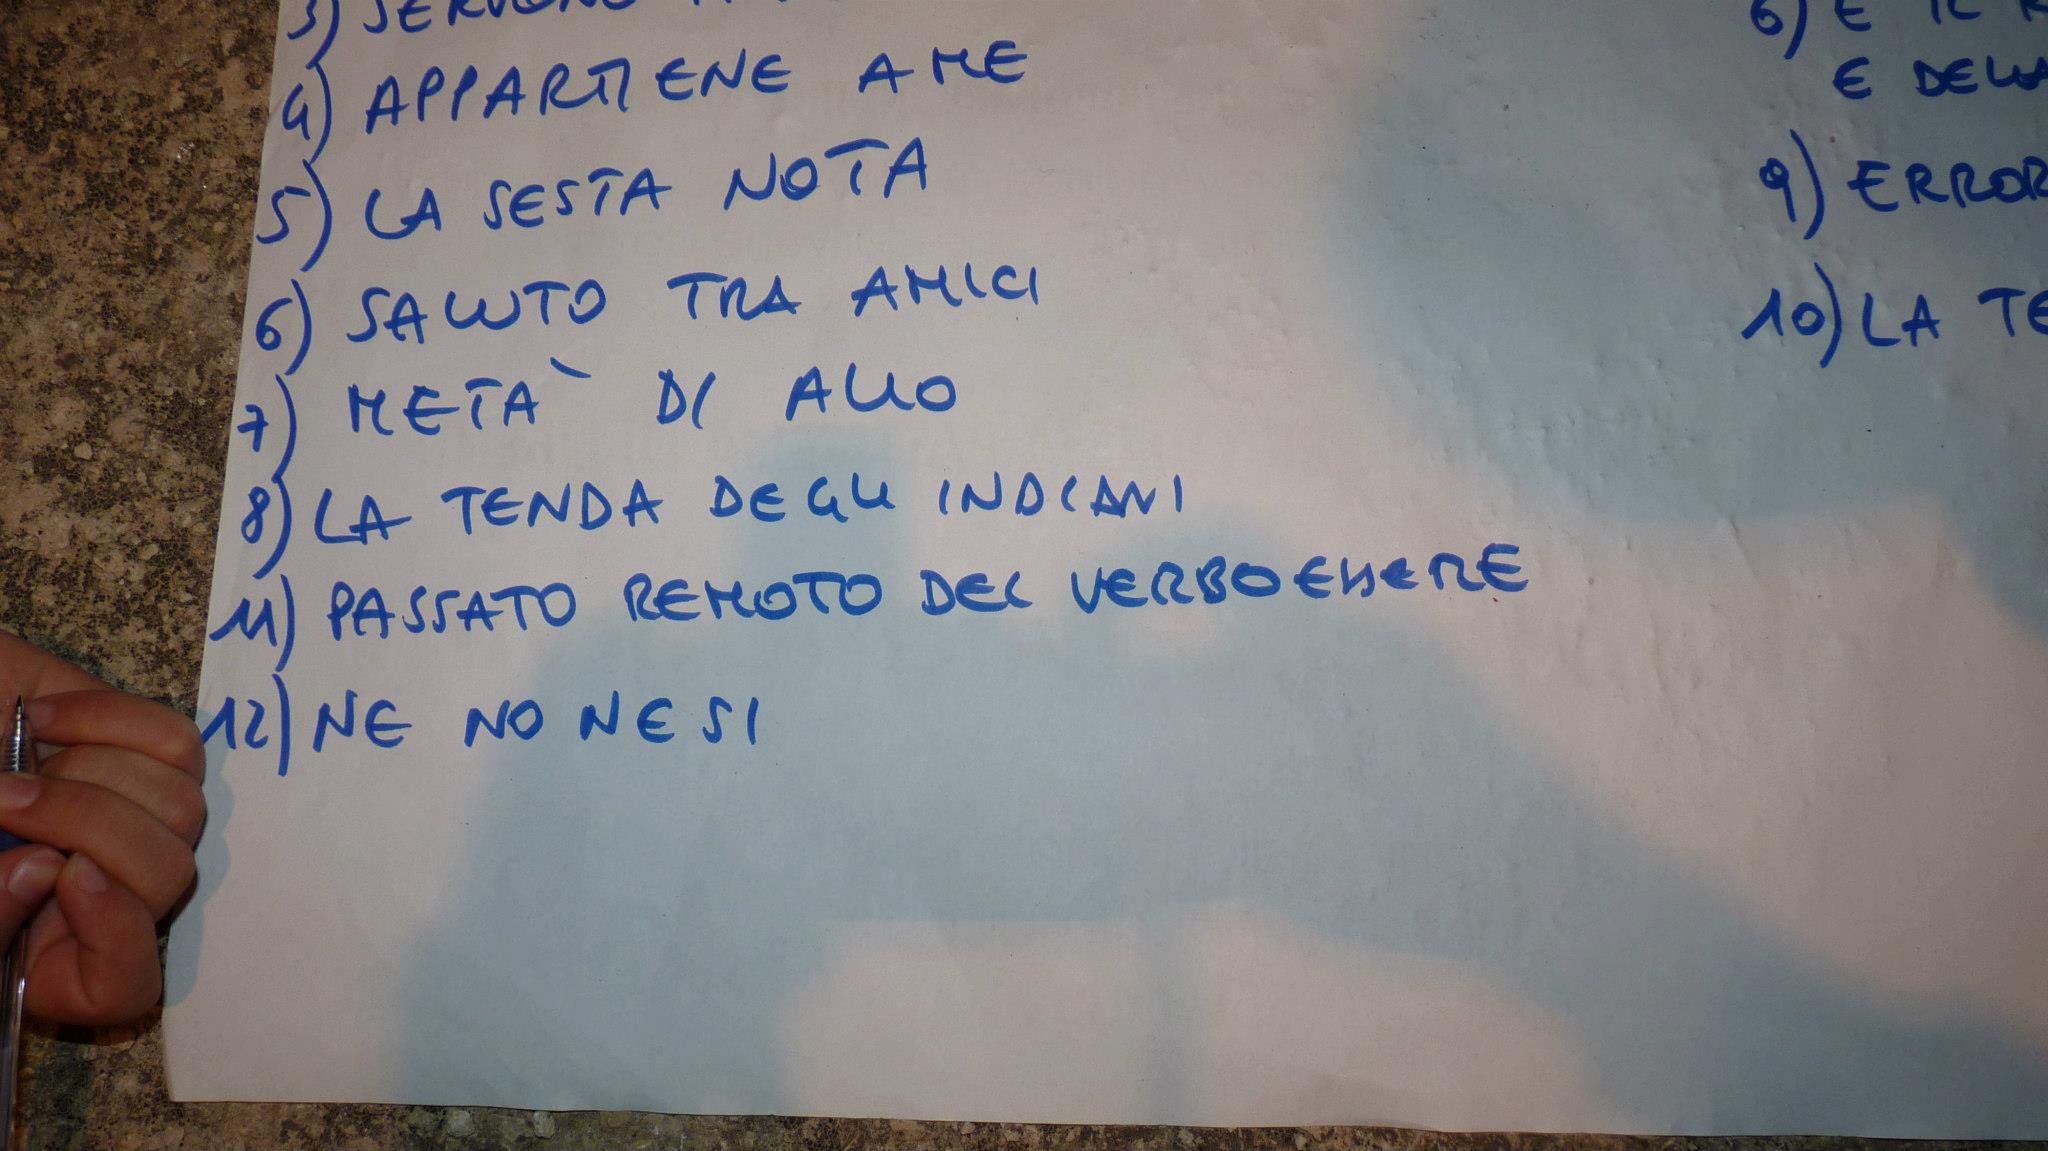 3) SERVONO
4) APPARTIENE A ME
5) LA SESTA NOTA
6) SALUTO TRA AMICI
7) METÀ DI ALLO
8) LA TENDA DEGLI INDIANI
11) PASSATO REMOTO DEL VERBO ESSERE
12) NE NO NE SI
6) E IL
E DELLA
9) ERROR
10) LA TE